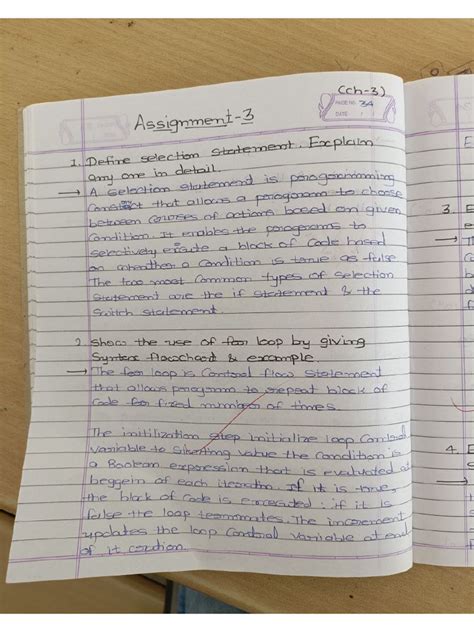 (ch-3)
PAGE NO. 34
DATE
Assignment-3
1. Define selection statement. Explain
any one in detail.
→ A selection statement is programming
that allows a program to choose
between courses of actions based on given
Condition. It enables the programs to
selectively a block of Code based
on whether a Condition is true as false
The two most Common types of selection
statement are the if statement & the
Switch statement.
2. Show the use of for loop by giving
Syntax flowchard & example.
→ The for loop is Control flow statement
that allows program to repeat block of
Code for fixed number of times.
The initilization step initialize loop Control
Variable to value the Condition is
a Boolean expression that is evaluated at
beggein of each iteration If it is true,
the block of Code is executed : if it is
false the loop teammates. The increment
updates the loop Control variable at end
of it
3. E
e
→ T
4. E